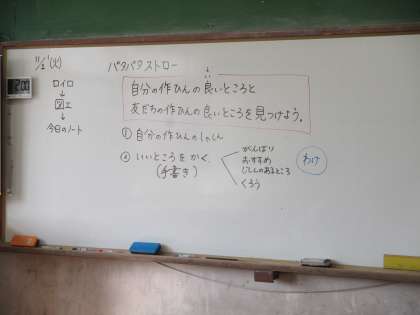 11/2(火)
パタパタストロー
ロイロ
↓
図工
↓
今日のノート
自分の作ひんの良いところと
友だちの作ひんの良いところを見つけよう。
① 自分の作ひんの
② いいところをかく。
(手書き)
がんばり
おすすめ
じしんのあるところ
くろう
わけ